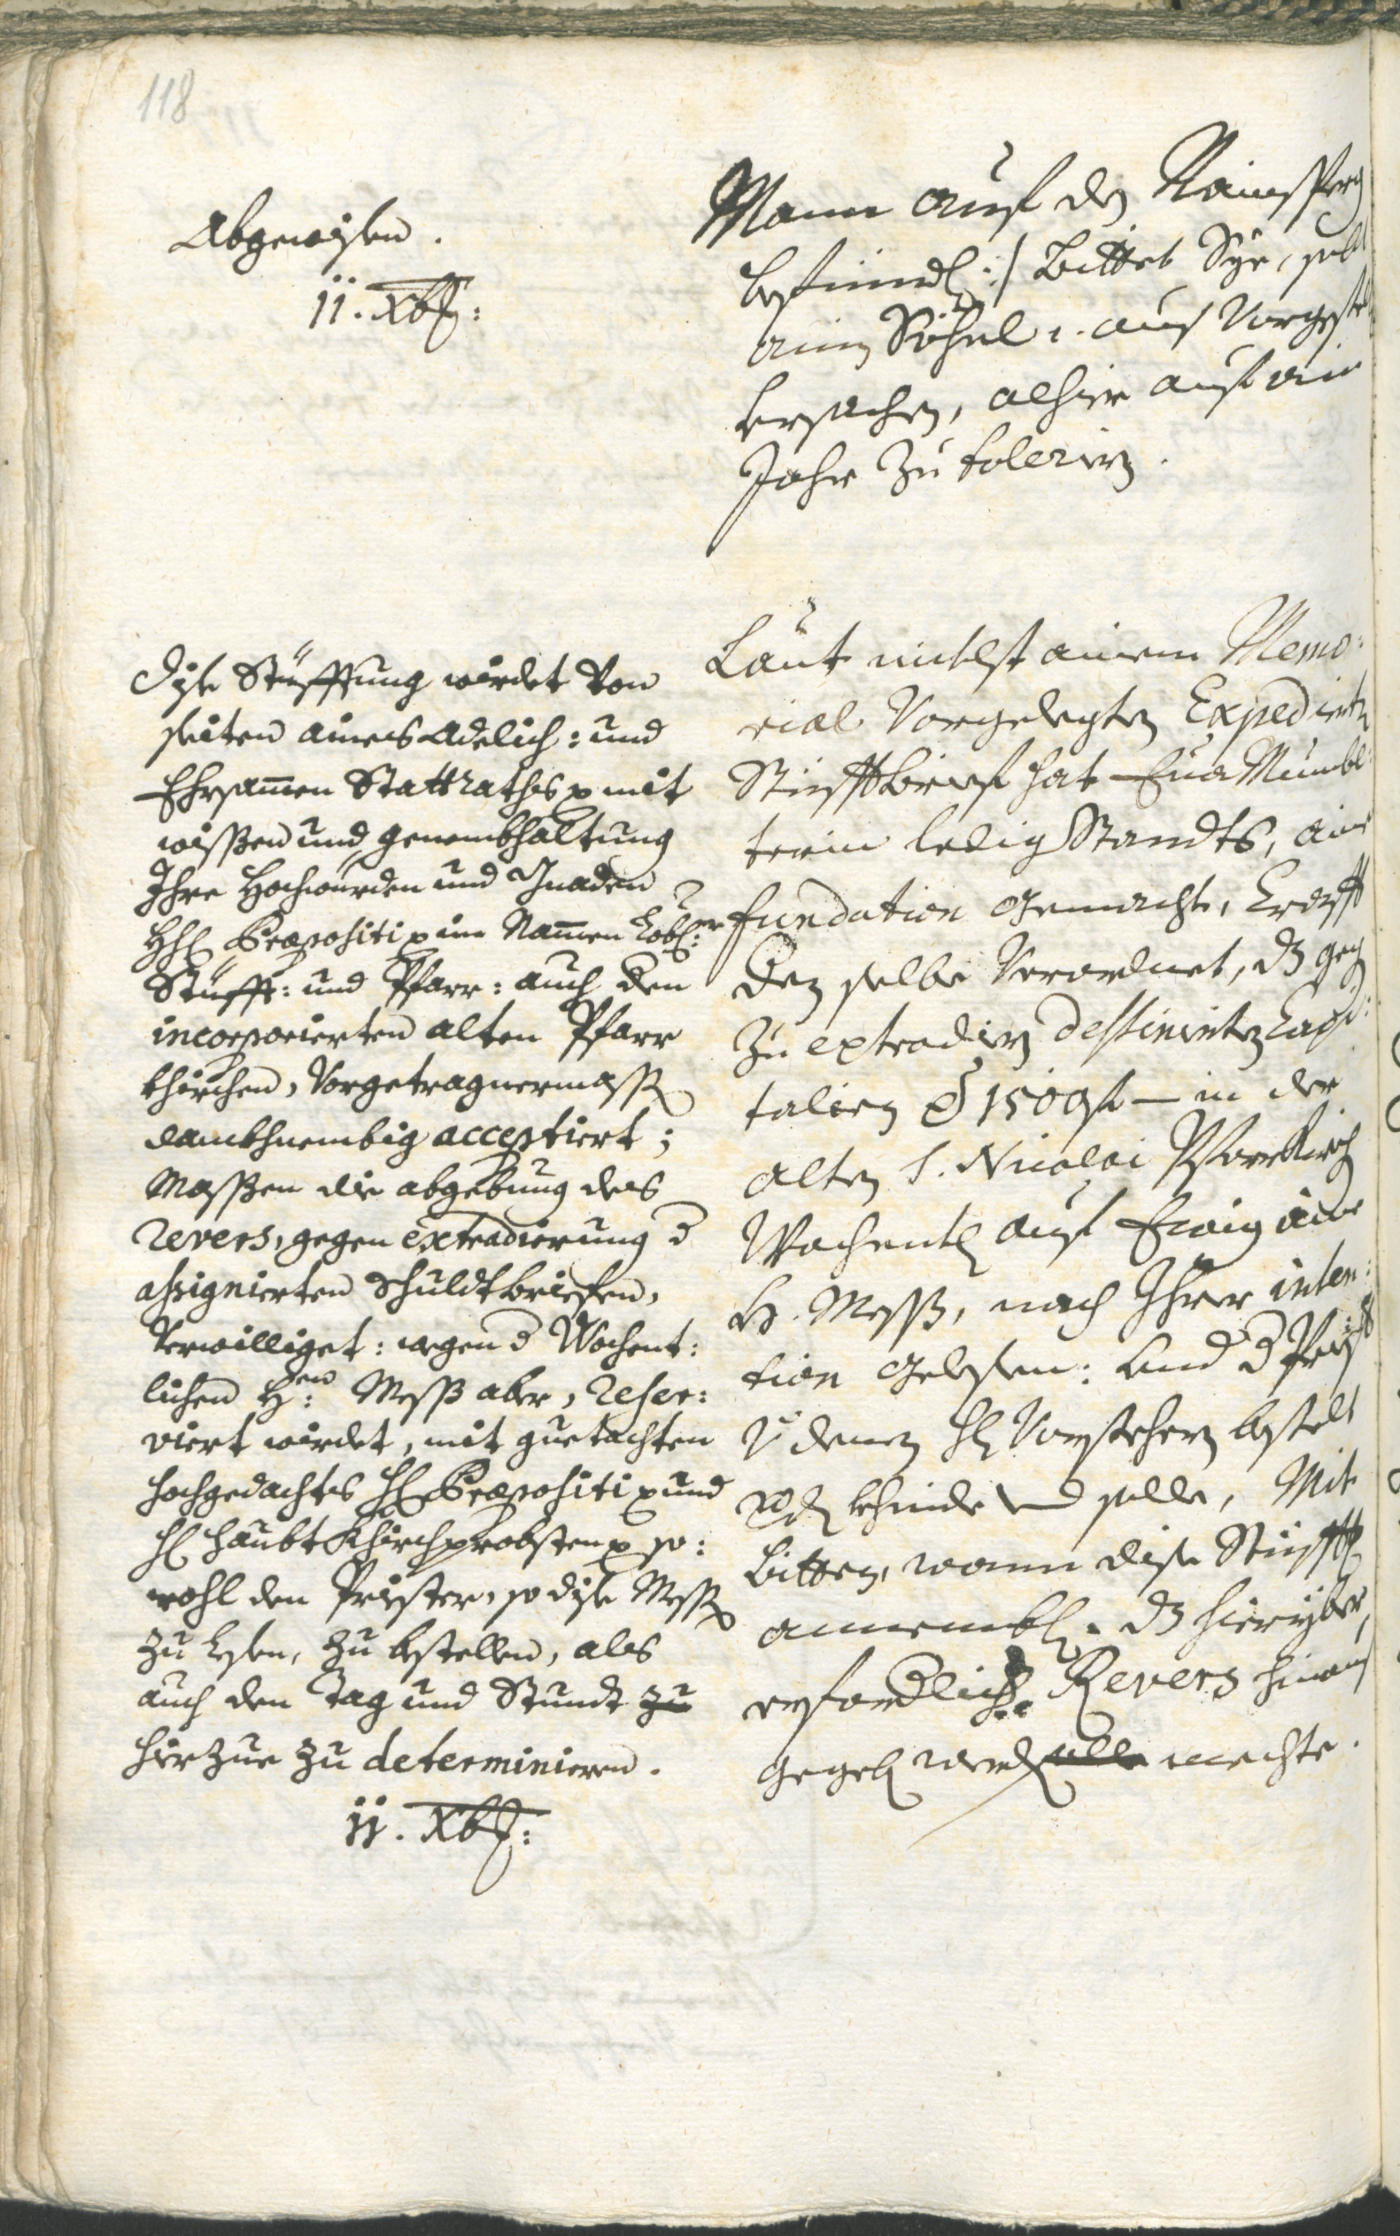 118
Abgewisen.
11. Xbr:
Mann auf den
befündl:/ Bittet Sye, sambt
ainem Söhnl, aus Vorgestelten
Vrsachen, alhier auf ein
Jahr zu toleriern.
Dise Stüfftung würdet von
seiten aines Adelich: und
Ehrsammen Stattraths p mit
wissen und genembhaltung
Ihro Hochwürden und Gnaden
Hl: Præpositi p im Nammen Löbl:
Stüfft: und Pfarr: auch den
incorporierten alten Pfarr
khirchen, vorgetragnermassen
dankhnembig acceptiert;
Massen die abgebung des
revers, gegen extradierung d
assignierten schuldtbriefen,
verwilliget: wegen d Wochent:
lichen H:en Mess aber, reser:
viert würdet, mit guetachten
hochgedachtes Hl: Præpositi p und
Hl: haubt Khirchprobsten p so:
wohl den Priester, so dise Mess
zu lesen, zu bestellen, als
auch den Tag und Stundt zu
hierzue zu determinieren.
11. Xbr:
Laut mitlst ainem Memo:
rial Vorgelegten Expedierten
Stüfftbrief hat Eva
terin ledig Standts, eine
fundation gemacht, Crafft
den selbe Verordnet, dz gegen
zu extradiern destinierten Capi:
talien p 1500 fl — in der
alten S. Nicolai Pfarrkirchen
Wochentl: auf Ewig eine
H. Mess, nach Ihrer inten:
tion gelesen: und d Priester
von denen Hl: Vorstehern bestelt
werden khinde und solle, Mit
Bitten, wann dise Stüfftung
annembl: dz hierüber
erforderliche Revers hinaus
gegeben werden solle mechte.